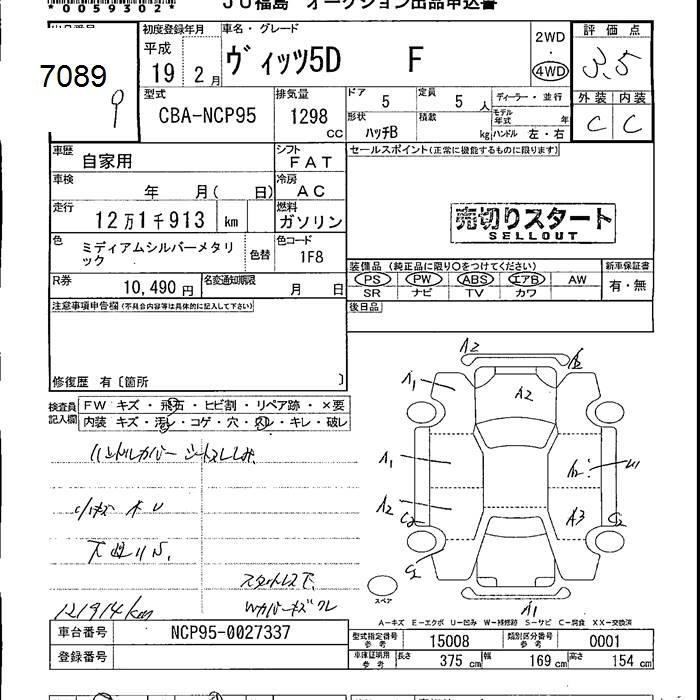 *0059302*
JU福島 オークション出品申込書
初度登録年月 車名・グレード 2WD 評価点
平成 19 2月 ヴィッツ5D F 4WD 3.5
7089
型式 排気量 ドア 5 定員 5人 ディーラー・並行 外装 内装
CBA-NCP95 1298 CC 形状 ハッチB 積載 kg モデル年式 年 ハンドル 左・右 C C
車歴 自家用 シフト FAT セールスポイント(正常に機能するものに限ります)
車検 年 月( 日) 冷房 AC
走行 12万1千913 km 燃料 ガソリン
売切りスタート
SELLOUT
色 ミディアムシルバーメタリック 色替 色コード 1F8
装備品(純正品に限り○をつけてください) 新車保証書
R券 10,490円 名変通知期限 月 日 PS PW ABS エアB AW 有・無
SR ナビ TV カワ
注意事項申告欄(不具合内容等は具体的に記入して下さい) 後日品
修復歴 有〔箇所 〕
検査員記入欄 FW キズ・飛石・ヒビ割・リペア跡・×要
内装 キズ・汚レ・コゲ・穴・凹レ・キレ・破レ
A2
A1
A2
A1
A2
A3
C2
C2
C2
A1
121914km
スペア
A-キズ E-エクボ U-凹み W-補修跡 S-サビ C-腐食 XX-交換済
車台番号 NCP95-0027337 型式指定番号 参考 15008 類別区分番号 参考 0001
登録番号 車庫証明用 参考 長さ 375 cm 幅 169 cm 高さ 154 cm